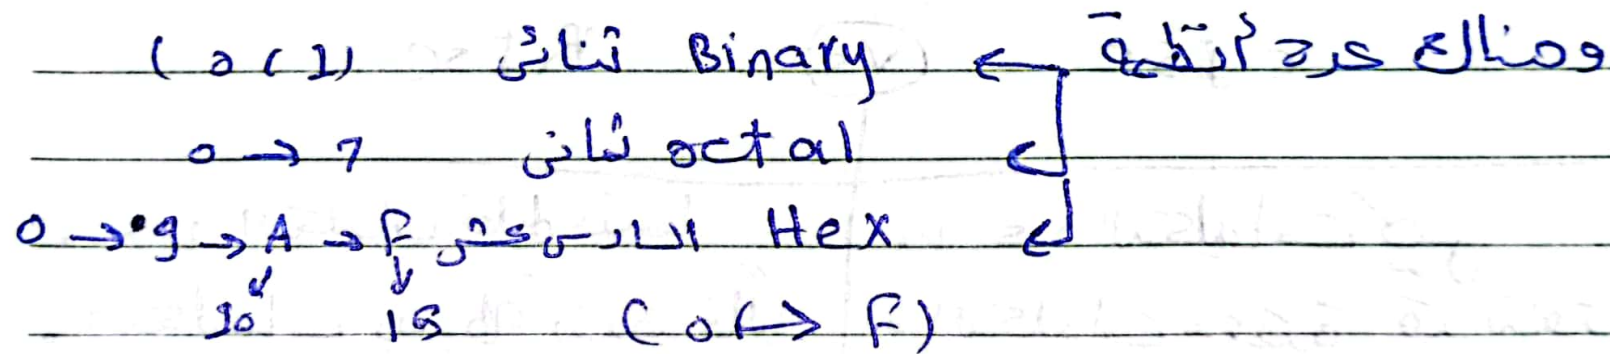 وهناك عدة أنظمة ← Binary ثنائى (0, 1)
octal ثمانى 0 → 7
Hex السادس عشر 0 → 9 → A → F
(0 ↔ F) 10 15